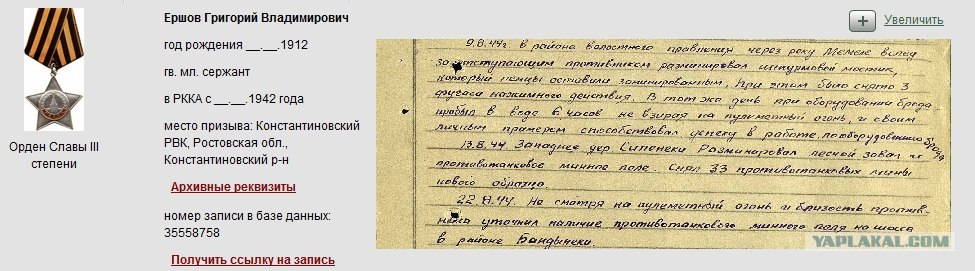 Орден Славы III
степени
Ершов Григорий Владимирович
год рождения __.__.1912
гв. мл. сержант
в РККА с __.__.1942 года
место призыва: Константиновский
РВК, Ростовская обл.,
Константиновский р-н
Архивные реквизиты
номер записи в базе данных:
35558758
Получить ссылку на запись
Увеличить
9.8.44г. в районе волостного правления через реку Мемеле вслед
за отступающим противником разминировал штурмовой мостик,
который немцы оставили заминированным, при этом было снято 3
фугаса нажимного действия. В тот же день при оборудовании брода
пробыл в воде 6 часов не взирая на пулеметный огонь, и своим
личным примером способствовал успеху в работе по оборудованию брода
13.8.44. Западнее дер. Сипонеки Разминировал лесной завал и
противотанковое минное поле. Снял 33 противотанковых мины
нового образца.
22.8.44. Не смотря на пулеметный огонь и близость против-
ника уточнил наличие противотанкового минного поля на шоссе
в районе Бандинеки.
YAPLAKAL.COM